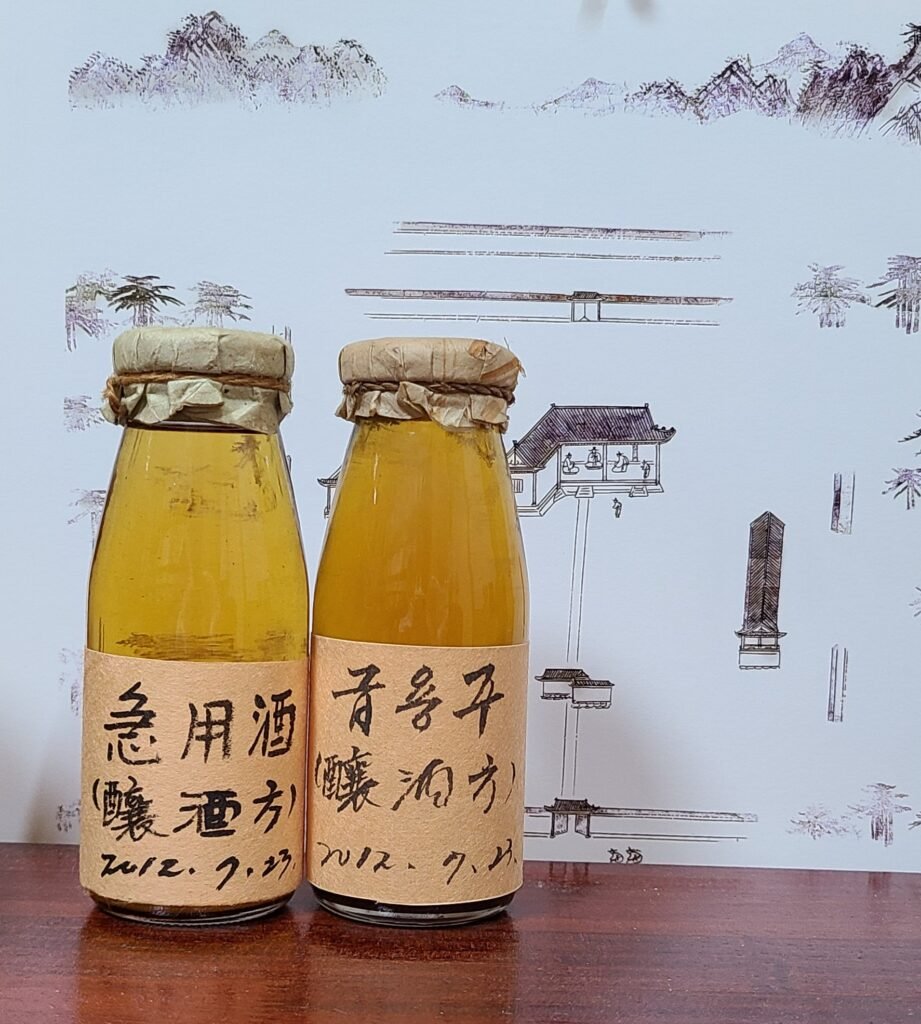 急用酒
(釀酒方)
2012. 9. 23.
급용주
(釀酒方)
2012. 9. 23.